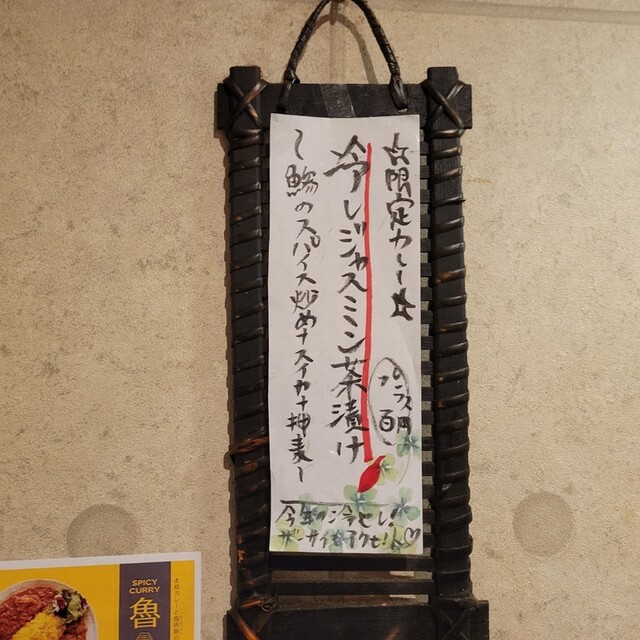 ☆限定カレー☆
冷しジャスミン茶漬け
プラス百円
〜鰯のスパイス炒め+スイカ+押麦〜
今年の冷せし!
ザーサイがアクセント♡
SPICY
CURRY
魯